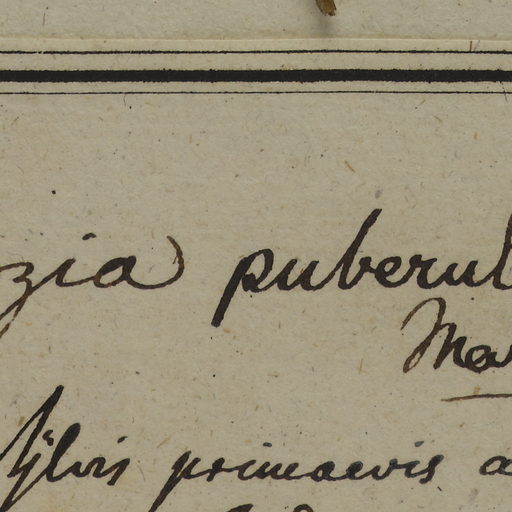 zia puberul
Mar
Sÿlvis primaevis a